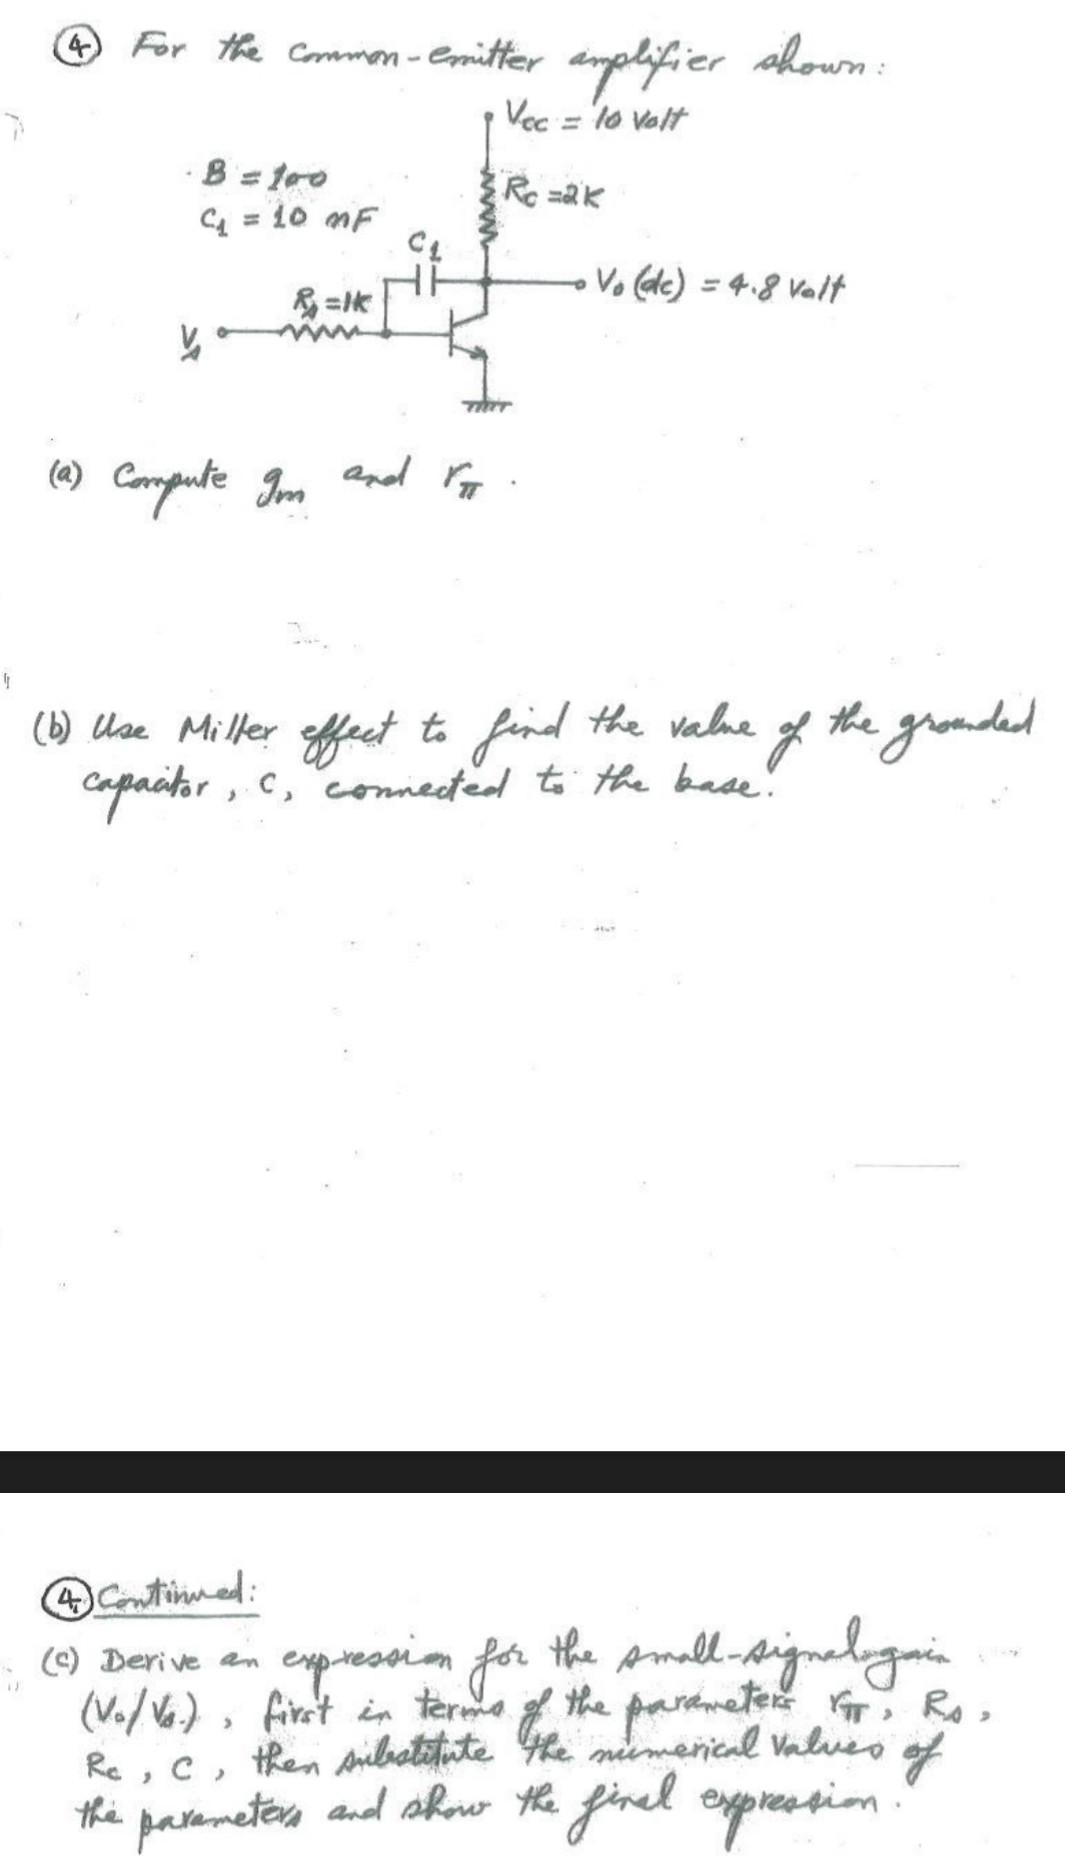 4 For the common-emitter amplifier shown:
Vcc = 10 Volt
B = 100
Rc = 2K
C1 = 10 nF
C1
Vo (dc) = 4.8 Volt
Rs = 1K
Vs
(a) Compute gm and rπ.
(b) Use Miller effect to find the value of the grounded
capacitor, C, connected to the base.
4 Continued:
(c) Derive an expression for the small-signal gain
(Vo/Vs), first in terms of the parameters rπ, Rs,
Rc, C, then substitute the numerical values of
the parameters and show the final expression.